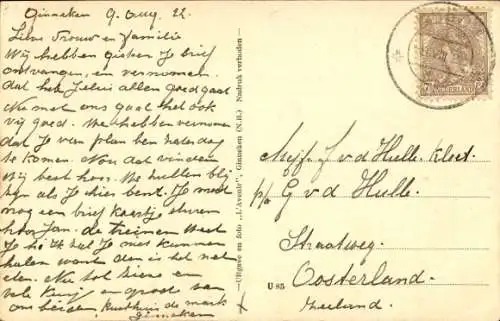 Ginneken 9 Aug. 22.
Lieve Vrouw en familie
Wij hebben gisten Je brief
ontvangen, en vernomen
dat het Jelui allen goed gaat
Nu met ons gaat het ook
vrij goed. We hebben vernomen
dat Je van plan ben Zaterdag
te komen. Nou dat vinden
Wij best hoor. We zullen blij
zijn als Je hier bent. Je moet
nog een brief kaartje sturen
hoor Jan. de treinen Weet
Je hé ik zal Je niet kunnen
halen want den is het net
eten. Nu tot ziens en
vele Kusj en groet van
ons beiden, Rusthuis de mark
Ginneken
Uitgave en foto „L'Avenir", Ginneken (N.B.) Nadruk verboden
U 85
NEDERLAND
Mejf. J v d Hulle Kloet.
p/a G v d Hulle.
Straatweg.
Oosterland.
Zeeland.